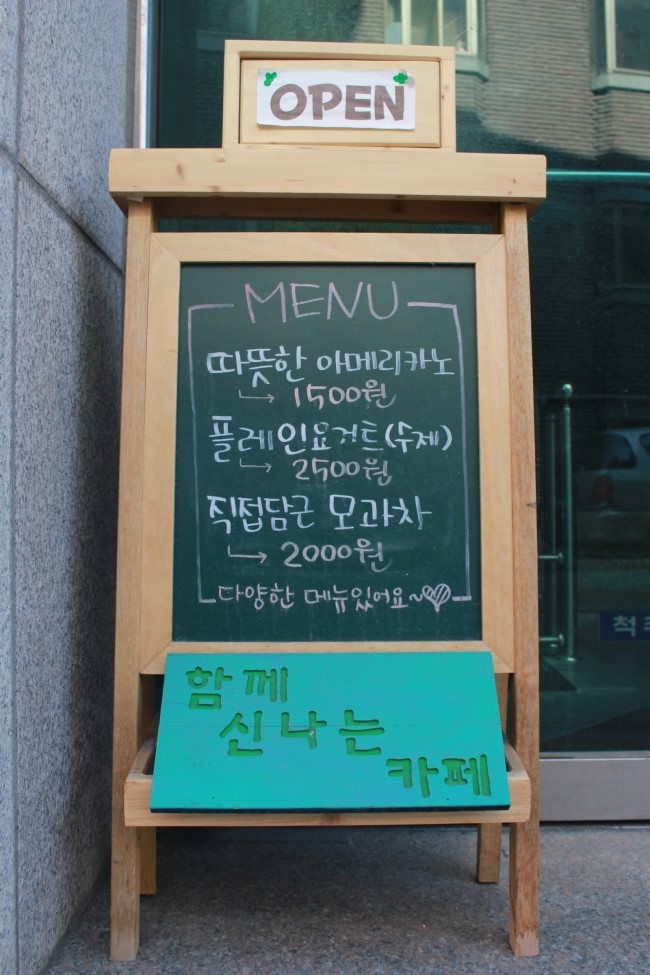 OPEN
MENU
따뜻한 아메리카노
→ 1500원
플레인요거트(수제)
→ 2500원
직접담근 모과차
→ 2000원
다양한 메뉴있어요~♡
함께
신나는
카페
척추